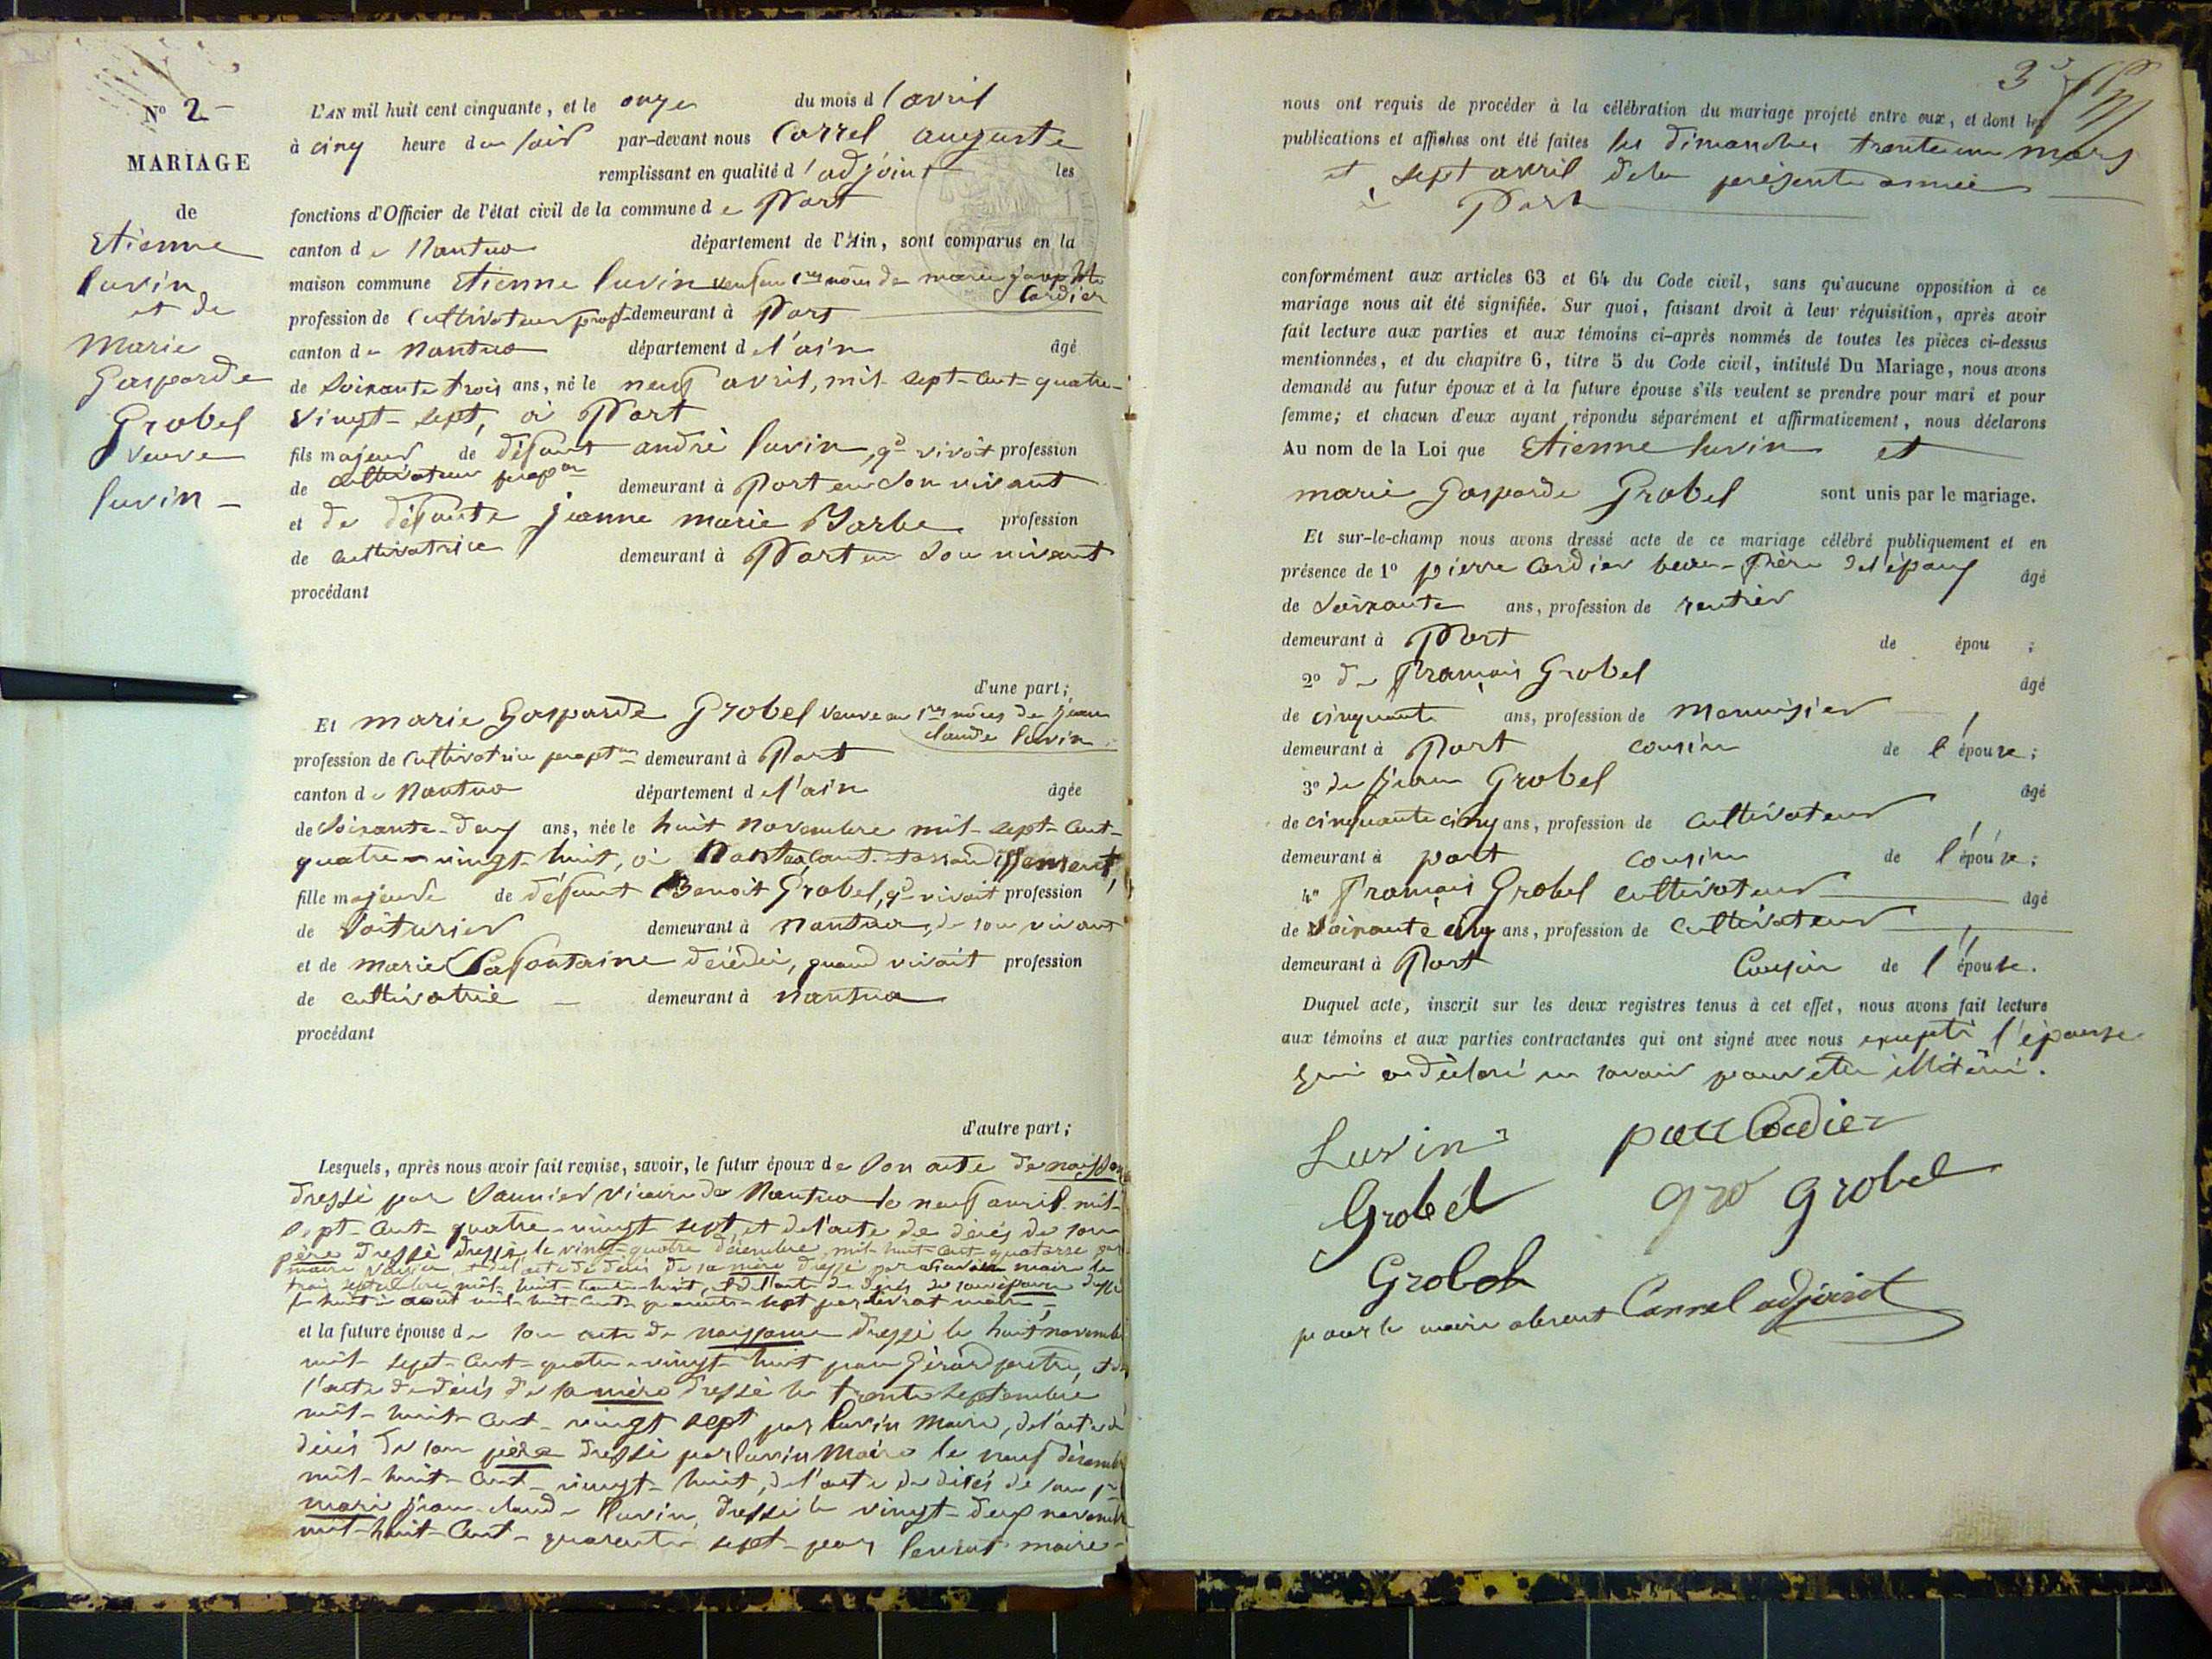 N° 2 -
MARIAGE
de
Etienne
luvin
et de
Marie
Gasparde
Grobel
veuve
luvin -
L'AN mil huit cent cinquante, et le onze du mois d'avril
à cinq heure du soir par-devant nous Carrel auguste
remplissant en qualité d'adjoint les
fonctions d'Officier de l'état civil de la commune de Port
canton de Nantua département de l'Ain, sont comparus en la
maison commune Etienne luvin veuf en 1res nôces de marie
Cordier
profession de Cultivateur propre demeurant à Port
canton de Nantua département de l'ain âgé
de soixante trois ans, né le neuf avril, mil sept-cent-quatre-
vingt-sept, à Port
fils majeur de défunt andré luvin, qd vivait profession
de cultivateur propre demeurant à Port en son vivant
et de défunte jeanne marie Barbe profession
de cultivatrice demeurant à Port en son vivant
procédant
d'une part;
Et marie Gasparde Grobel veuve en 1res nôces de jean
claude luvin
profession de cultivatrice proptre demeurant à Port
canton de Nantua département de l'ain âgée
de soixante-deux ans, née le huit novembre mil-sept-cent-
quatre-vingt-huit, à Nantua cant. et arrondissement,
fille majeure de défunt Benoit Grobel, qd vivait profession
de voiturier demeurant à nantua, de son vivant
et de marie Lafontaine décédée, quand vivait profession
de cultivatrice demeurant à nantua
procédant
d'autre part;
Lesquels, après nous avoir fait remise, savoir, le futur époux de son acte de
dressé par vicaire de Nantua le neuf avril mil-
sept-cent-quatre-vingt sept, et de l'acte de décés de son
père dressé dressé le vingt-quatre décembre mil-huit-cent-quatorze par
maire et de l'acte de décés de sa mère dressé par maire le
trois septembre mil-huit et de l'acte de décés de son épouse dressé
le huit août mil-huit-cent-quarante-sept par levrat maire
et la future épouse de son acte de naissance dressé le huit novembre
mil-sept-cent-quatre-vingt huit par Gérard prêtre, et de
l'acte de décés de sa mère dressé le trente septembre
mil-huit-cent-vingt sept par luvin maire, de l'acte de
décés de son père dressé par luvin Maire le neuf décembre
mil-huit-cent-vingt-huit, de l'acte de décés de son 1er
mari jean-claude luvin, dressé le vingt-deux novembre
mil-huit-cent-quarante sept-par levrat maire-
3
nous ont requis de procéder à la célébration du mariage projeté entre eux, et dont les
publications et affiches ont été faites les dimanches trente un mars
et sept avril de la présente année
à Port
conformément aux articles 63 et 64 du Code civil, sans qu'aucune opposition à ce
mariage nous ait été signifiée. Sur quoi, faisant droit à leur réquisition, après avoir
fait lecture aux parties et aux témoins ci-après nommés de toutes les pièces ci-dessus
mentionnées, et du chapitre 6, titre 5 du Code civil, intitulé Du Mariage, nous avons
demandé au futur époux et à la future épouse s'ils veulent se prendre pour mari et pour
femme; et chacun d'eux ayant répondu séparément et affirmativement, nous déclarons
Au nom de la Loi que Etienne luvin et
marie Gasparde Grobel sont unis par le mariage.
Et sur-le-champ nous avons dressé acte de ce mariage célébré publiquement et en
présence de 1° pierre Cordier beau-frère de l'époux âgé
de soixante ans, profession de rentier
demeurant à Port de épou ;
2° de François Grobel âgé
de cinquante ans, profession de Menuisier
demeurant à Port cousin de l'épouse;
3° de Jean Grobel âgé
de cinquante cinq ans, profession de cultivateur
demeurant à port cousin de l'épouse;
4° François Grobel cultivateur âgé
de soixante cinq ans, profession de cultivateur
demeurant à Port Cousin de l'épouse.
Duquel acte, inscrit sur les deux registres tenus à cet effet, nous avons fait lecture
aux témoins et aux parties contractantes qui ont signé avec nous excepté l'épouse
qui a déclaré ne savoir pour être illitéré.
Luvin
Cordier
Grobel
gro grobel
Grobel
pour le maire absent Carrel adjoint